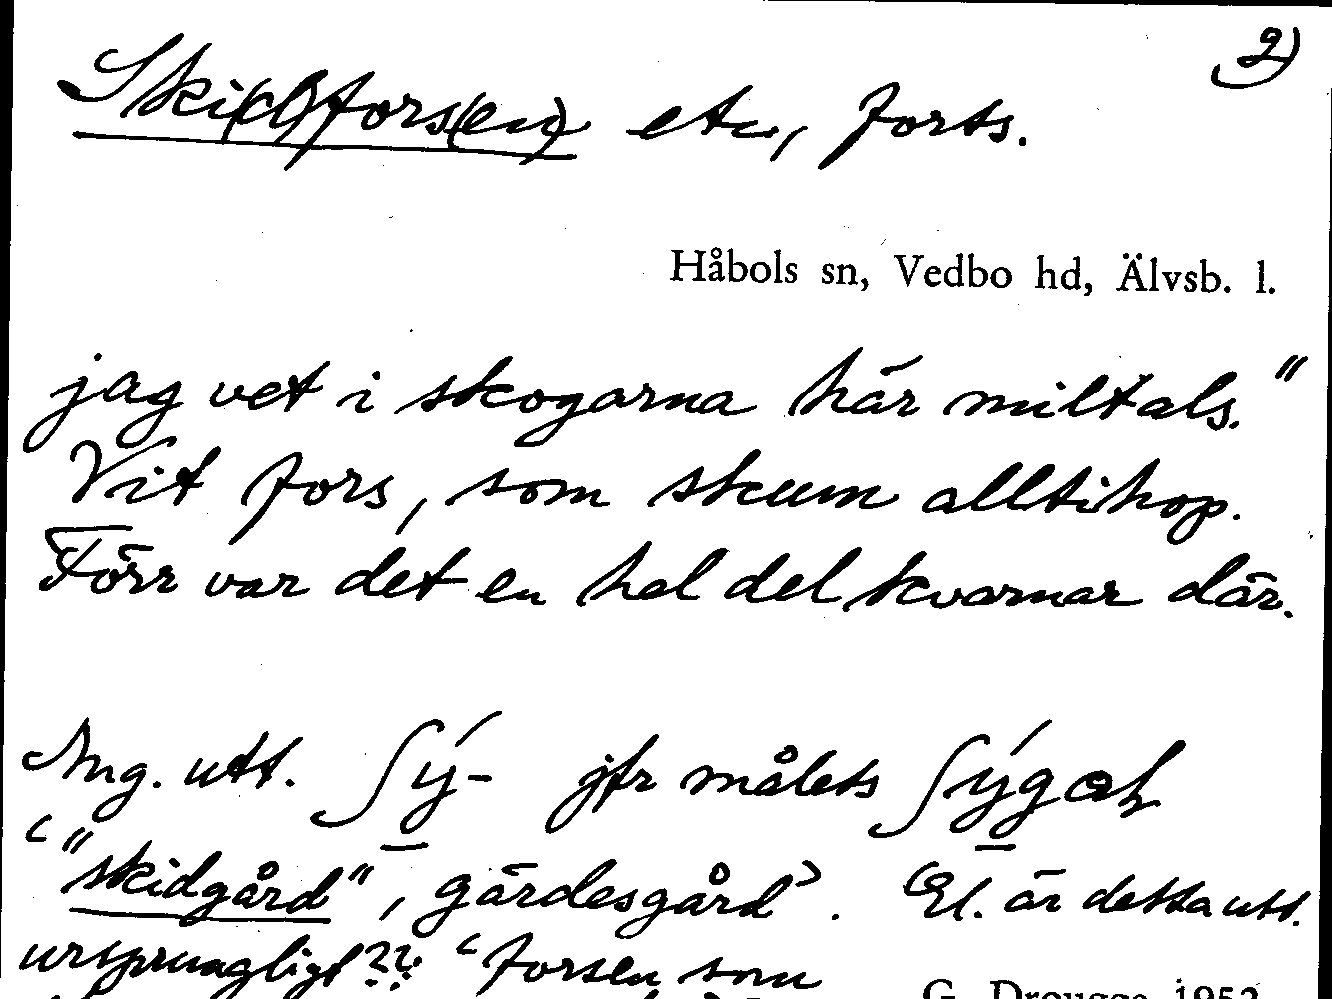 2)
Ski(d)fors(en) etc, forts.
Håbols sn, Vedbo hd, Älvsb. l.
jag vet i skogarna här miltals."
Vit fors, som skum alltihop.
Förr var det en hel del kvarnar där.
Ang. utt. ʃý- jfr målets ʃýgaɽ
‘"skidgård", gärdesgård’. El. är detta utt.
ursprungligt?? ‘Forsen som
G. Drougge 1952